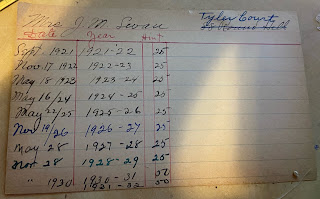 Mrs J. M. Swan Tyler Court
38 Round Hill
Date Year Amt
Sept. 1921 1921-22 25
Nov 17 1922 1922-23 25
May 18 1923 1923-24 25
May 16/24 1924-25 25
May 22/25 1925-26 25
Nov 19/26 1926-27 25
May 28 1927-28 25
Nov 28 1928-29 25
" 1930 1930-31 50
1931-32 50